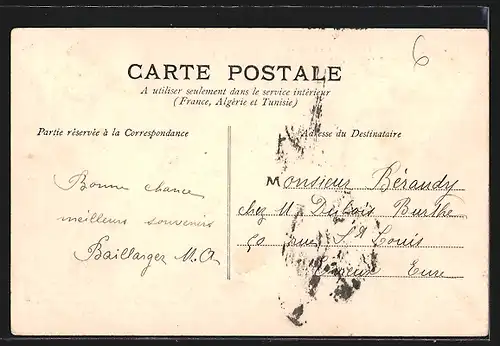 6
CARTE POSTALE
A utiliser seulement dans le service intérieur
(France, Algérie et Tunisie)
Partie réservée à la Correspondance
Adresse du Destinataire
Bonne chance
meilleurs souvenirs
Baillarger M. A.
Monsieur Béraudy
chez M Dubois Burthe
50 rue St Louis
Evreux Eure